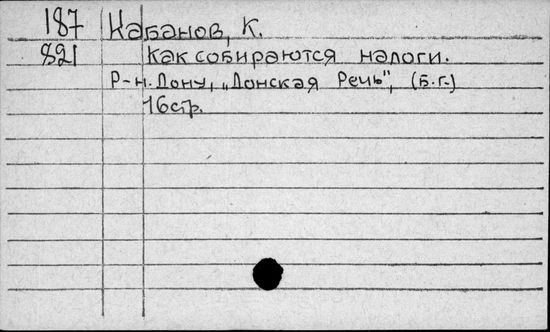 187 Кабанов, К.
821 Как собираются налоги.
Р-н.Дону, „Донская Речь", (Б.г.)
16стр.